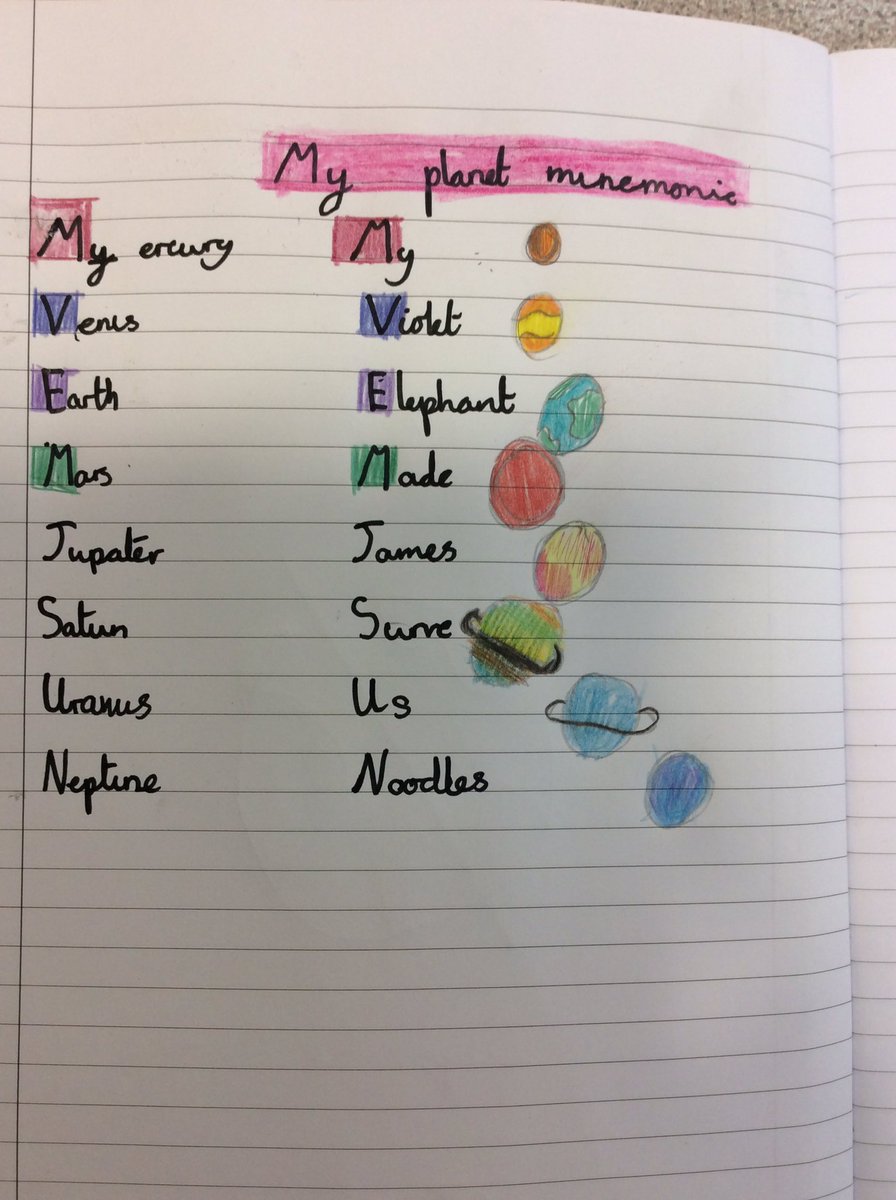 My planet mnemonic
My ercury My
Venus Violet
Earth Elephant
Mars Made
Jupater James
Satun Surve
Uranus Us
Neptune Noodles